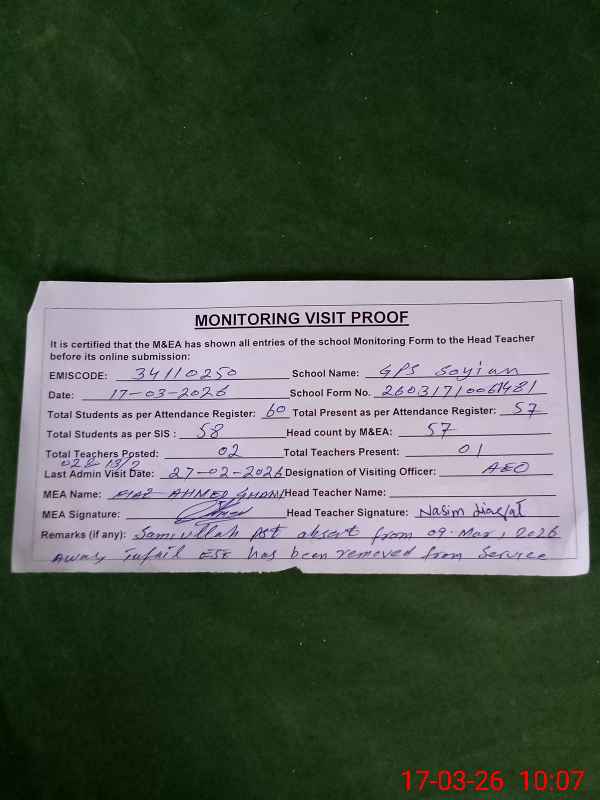 MONITORING VISIT PROOF
It is certified that the M&EA has shown all entries of the school Monitoring Form to the Head Teacher
before its online submission:
EMISCODE: 34110250 School Name: GPS Soyian
Date: 17-03-2026 School Form No. 
Total Students as per Attendance Register: 60 Total Present as per Attendance Register: 57
Total Students as per SIS : 58 Head count by M&EA: 57
Total Teachers Posted: 02 Total Teachers Present: 01
Last Admin Visit Date: 27-02-2026 Designation of Visiting Officer: AEO
MEA Name: AHMED GHANI Head Teacher Name:
MEA Signature: Head Teacher Signature: Nasim
Remarks (if any): Samiullah PST absent from 09-Mar, 2026
Tufail ESE has been removed from Service
17-03-26 10:07